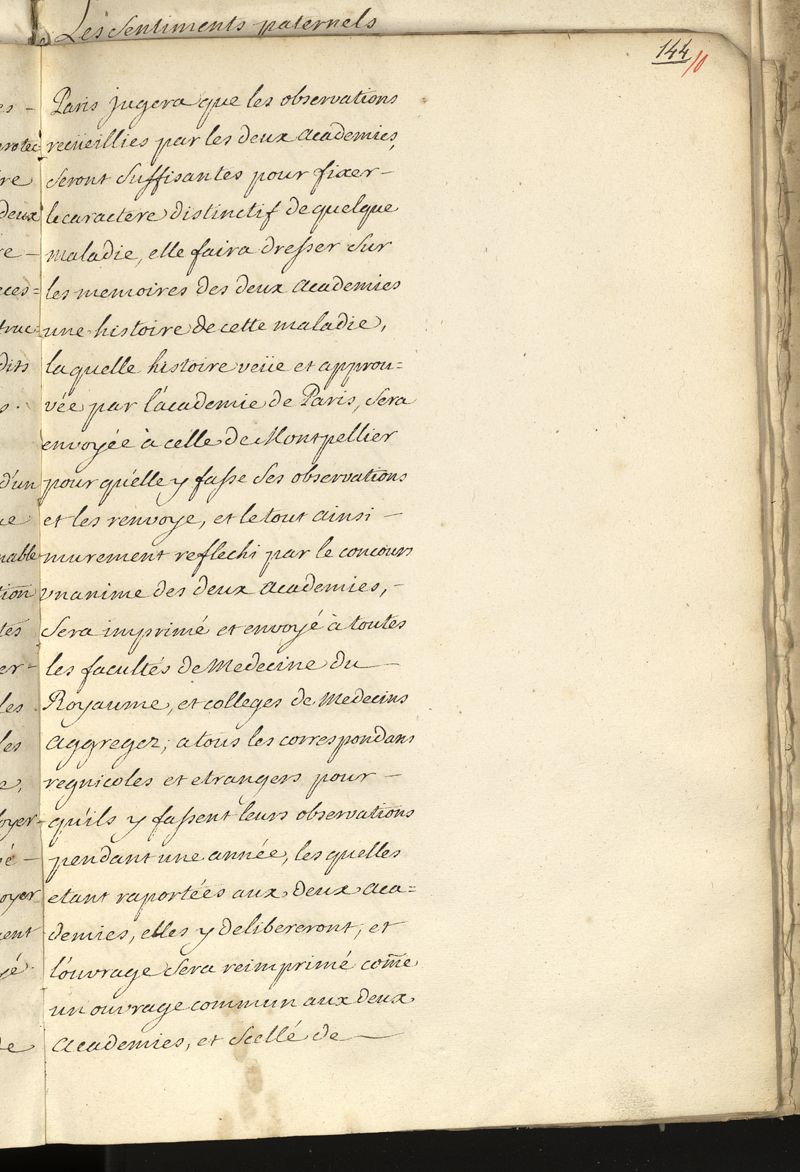 Les sentiments paternels
144
10
Paris jugera que les observations
recüeillies par les deux academies,
seront suffisantes pour fixer –
le caractere distinctif de quelque
maladie, elle faira dresser sur
les memoires des deux academies
une histoire de cette maladie,
laquelle histoire veüe et approu=
vée par l'academie de Paris, sera
envoyée à celle de Montpellier
pour qu'elle y fasse ses observations
et les renvoye, et le tout ainsi –
murement reflechi par le concours
vnanime des deux academies, –
sera imprimé et envoyé à toutes
les facultés de Medecine du –
Royaume, et colleges de Medecins
aggregez, a tous les correspondans
regnicoles et etrangers pour –
qu'ils y fassent leurs observations
pendant une année, les quelles
etant raportées aux deux aca=
demies, elles y delibereront, et
l'ouvrage sera reimprimé com̃e
un ouvrage commun aux deux
academies, et scellé de –